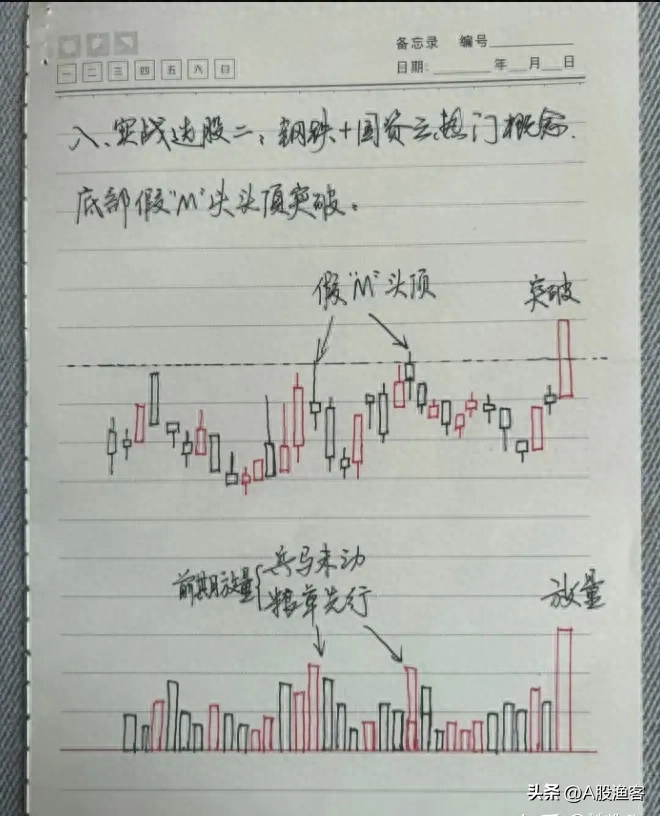 备忘录 编号
一 二 三 四 五 六 日
日期: 年 月 日
八、实战选股二：钢铁+国资云热门概念.
底部假"M"头头顶突破。
假"M"头顶
突破
前期放量{兵马未动
粮草先行
放量
头条 @A股渔客